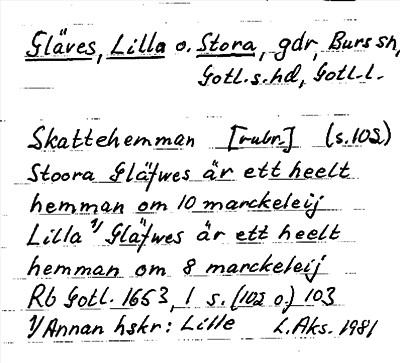 Gläves, Lilla o. Stora, gdr, Burs sn,
Gotl. s. hd, Gotl. l.
Skattehemman [rubr.] (s. 102)
Stoora Gläfwes är ett heelt
hemman om 10 marckeleij
Lilla 1/ Gläfwes är ett heelt
hemman om 8 marckeleij
Rb Gotl. 1653, 1 s. (102 o.) 103
1/ Annan hskr: Lille L. Aks. 1981